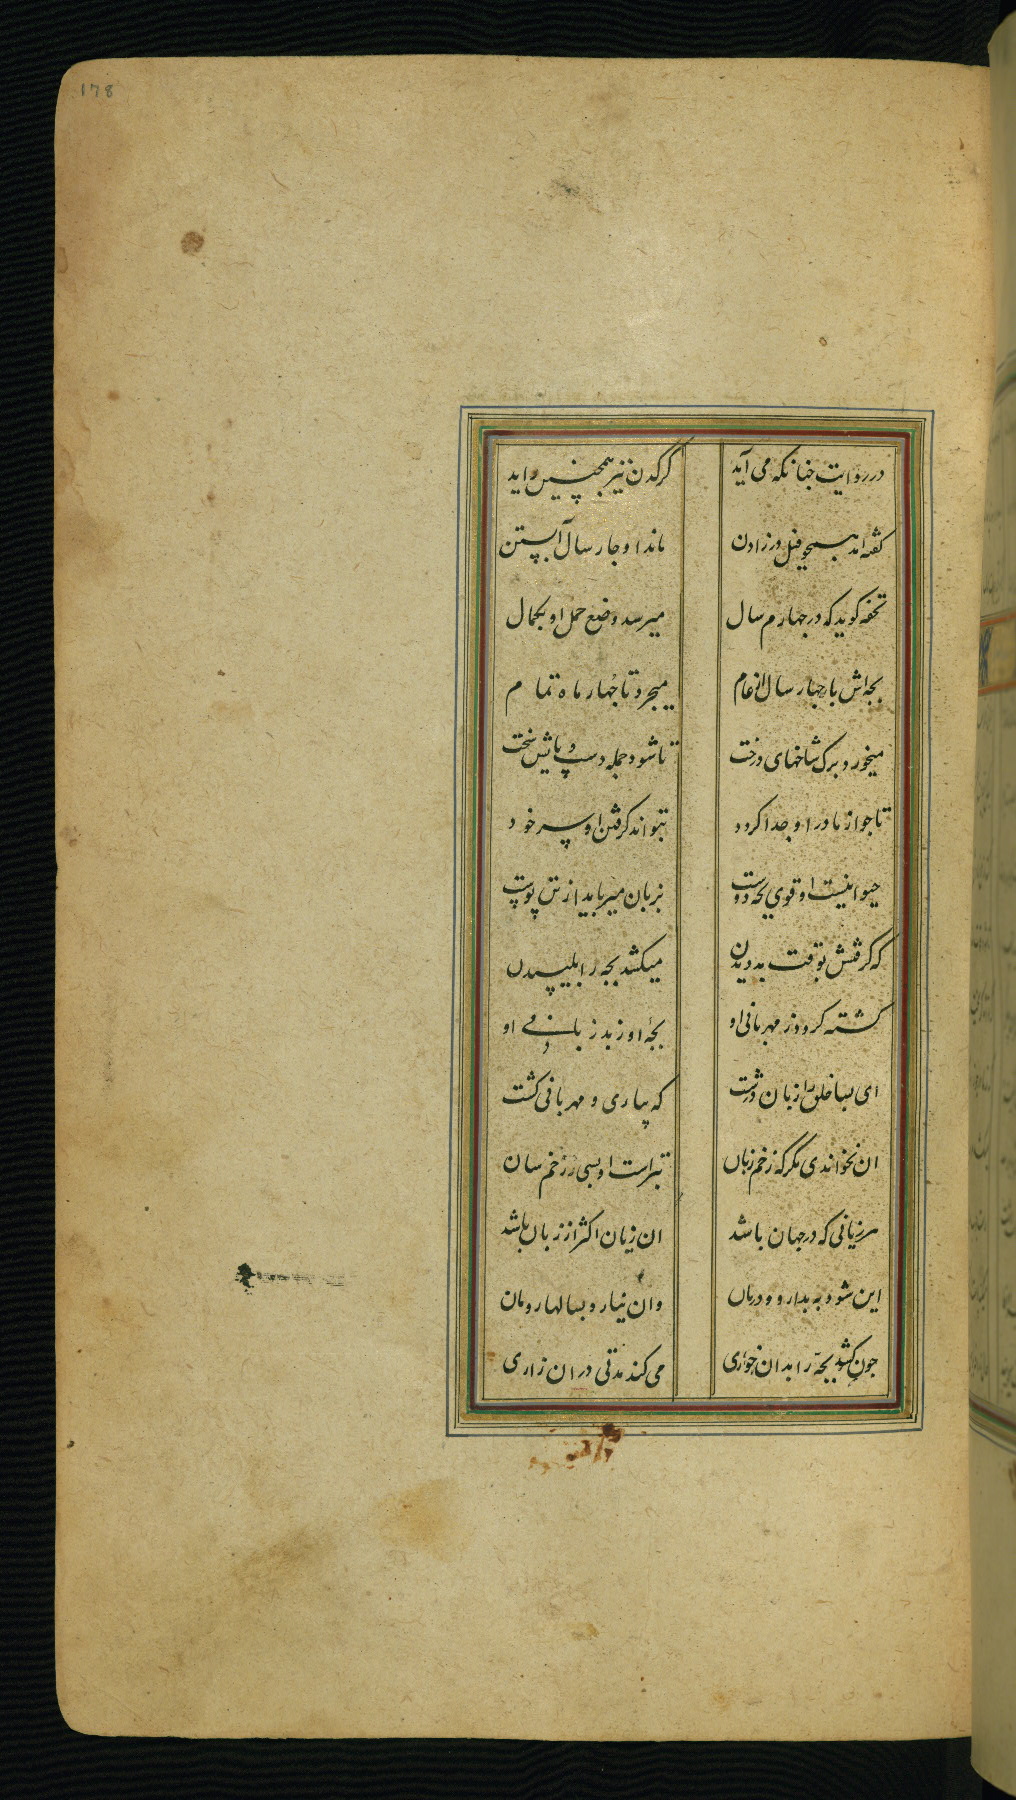 178
در روایت چنانکه می آید کرکدن نیز همچنین زاید
گفته اند همچو فیل در زادن ماند او چار سال آبستن
تحفه کوید که در چهارم سال میرسد وضع حمل او بکمال
بچه اش بار چهار سال از عام میچرد تا چهار ماه تمام
میخورد برک شاخهای درخت تا شود جمله دست و پایش سخت
تا جو از مادر او جدا کردد نتواند کرفتن او سر خود
حیوانیست او قوی بچه دوست بزبان میرباید از تن پوست
که کرفتش بوقت بد دیدن میکشد بچه را بلیسیدن
کشته کردد ز مهربانی او بچهٔ او ز بد زبانی او
ای بسا خلق را زبان درشت که بیاری و مهربانی کشت
ان نخواندی مکر که زخم زبان بتراست او بسی ز زخم سنان
هر زیانی که در جهان باشد ان زیان اکثر از زبان باشد
این شود به بدارو و درمان وان نیارد بسالها رو مان
چون کشد بچه را بدان خواری می کند مدتی در ان زاری